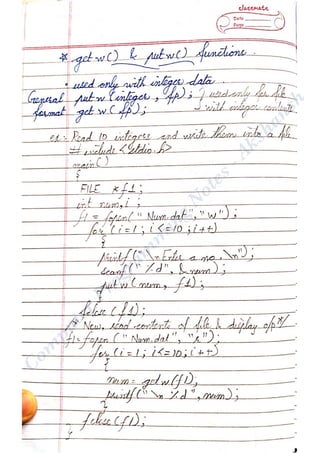 classmate
Date
Page
* getw() & putw() functions.
• used only with integer data.
General putw(integer, fp); } used only for file
format getw(fp); } with integer contents
ex:- Read 10 integers and write them into a file
# include <stdio.h>
main()
{
FILE *f1;
int num, i;
f1 = fopen("Num.dat", "w");
for (i=1; i<=10; i++)
{
printf("\n Enter a no. \n");
scanf("%d", &num);
putw(num, f1);
}
fclose(f1);
/* Now, read contents of file & display o/p */
f1 = fopen("Num.dat", "r");
for (i=1; i<=10; i++)
{
num = getw(f1);
printf("\n %d", num);
}
fclose(f1);
}